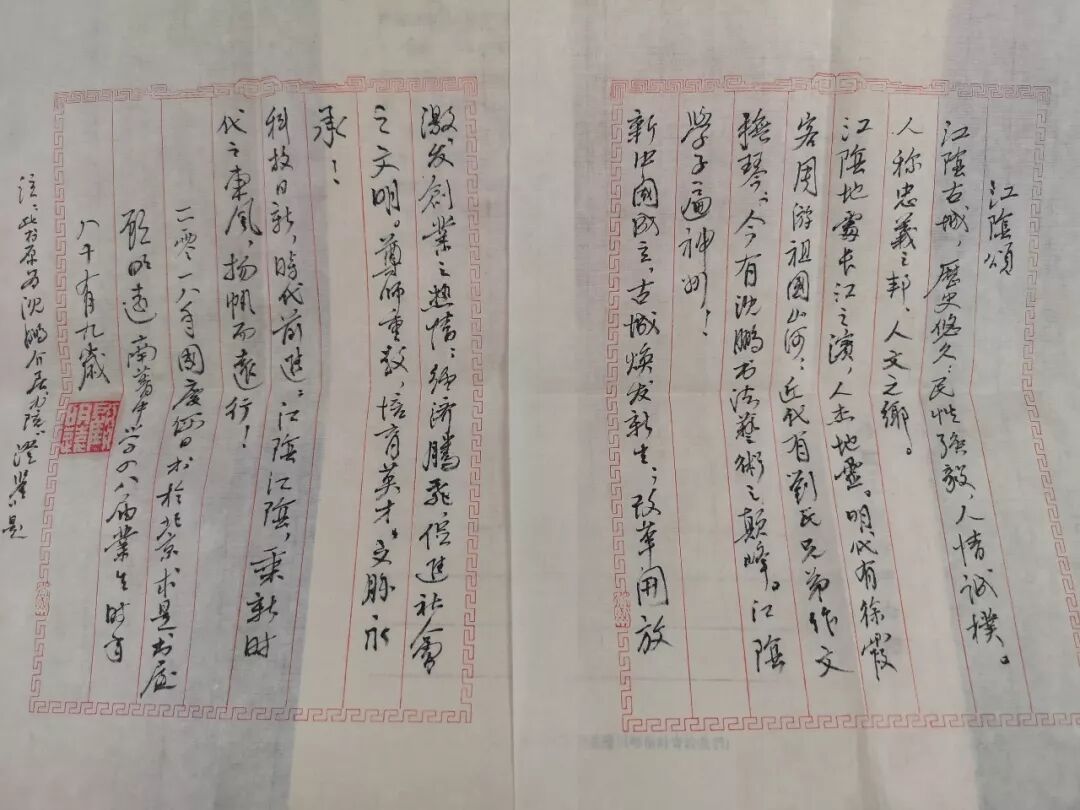 江陰頌
江陰古城，歷史悠久；民性强毅，人情诚樸。
人称忠義之邦、人文之鄉。
江陰地處长江之濱，人杰地靈。明代有徐霞
客周游祖國山河；近代有劉氏兄弟作文
撫琴；今有沈鹏书法藝術之巅峰。江陰
学子遍神州！
新中國成立，古城焕发新生；改革開放
激发創業之热情；经济騰飛，促進社會
之文明。尊师重教，培育英才。文脉永
承！
科技日新，時代前進；江陰江陰，乘新时
代之東風，扬帆而遠行！
二零一八年國慶节日书於北京求是书屋
顾明遠 南菁中学四八届業生时年
八十有九歲
注：此石原为沈鹏介居书院